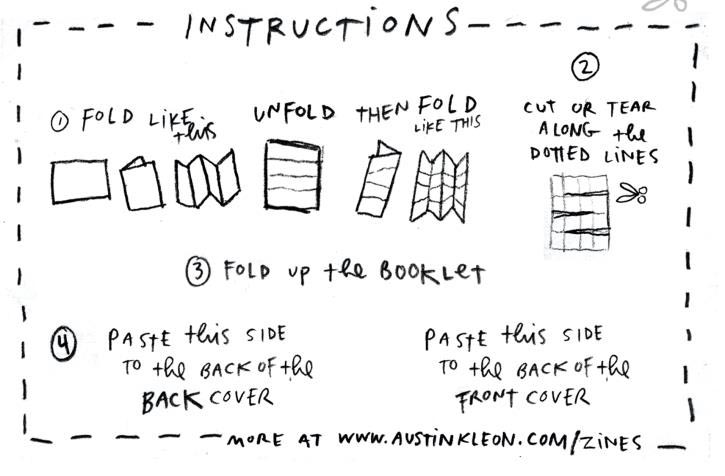 INSTRUCTIONS
① FOLD LIKE this
UNFOLD
THEN FOLD
LIKE THIS
②
CUT OR TEAR
ALONG the
DOTTED LINES
③ FOLD UP the BOOKLET
④ PASTE this SIDE
TO the BACK OF the
BACK COVER
PASTE this SIDE
TO the BACK OF the
FRONT COVER
MORE AT WWW.AUSTINKLEON.COM/ZINES